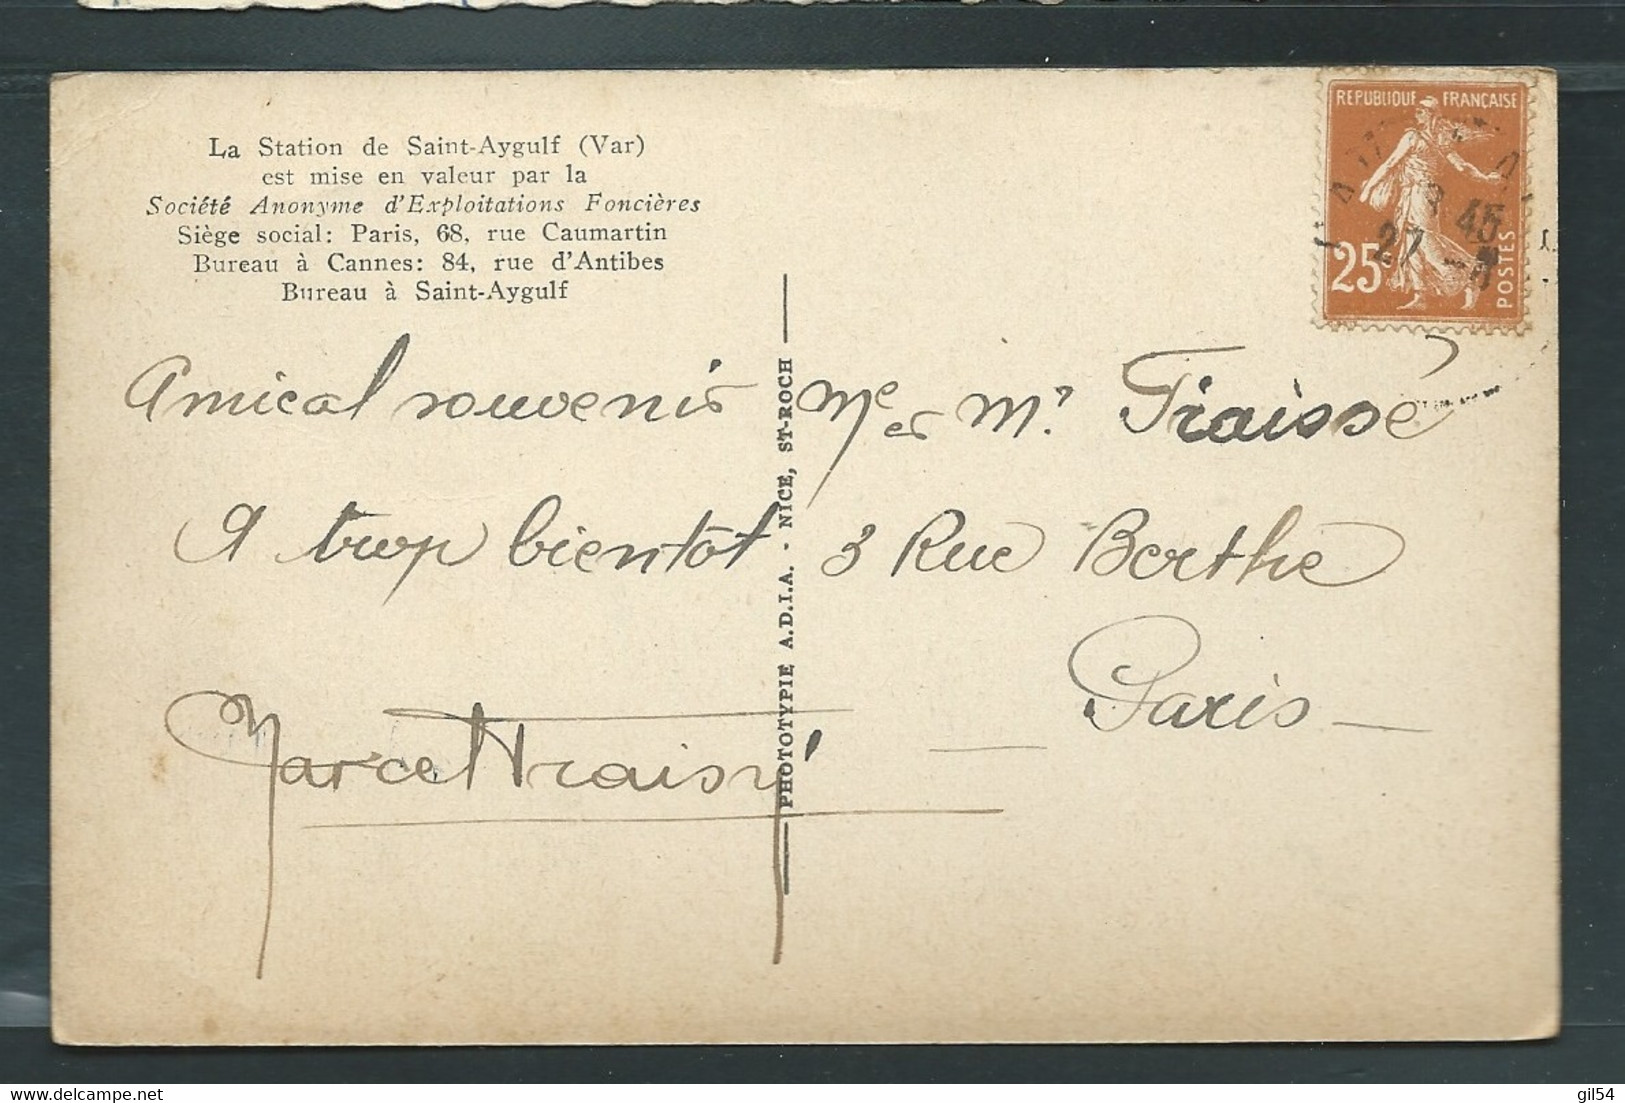 La Station de Saint-Aygulf (Var)
est mise en valeur par la
Société Anonyme d'Exploitations Foncières
Siège social: Paris, 68, rue Caumartin
Bureau à Cannes: 84, rue d'Antibes
Bureau à Saint-Aygulf
Amical souvenir
A trop bientot
PHOTOTYPIE A.D.I.A. - NICE, ST-ROCH
REPUBLIQUE FRANÇAISE
25c
POSTES
45
27
Me et Mr Fraissé
3 Rue Berthe
Paris
gil54